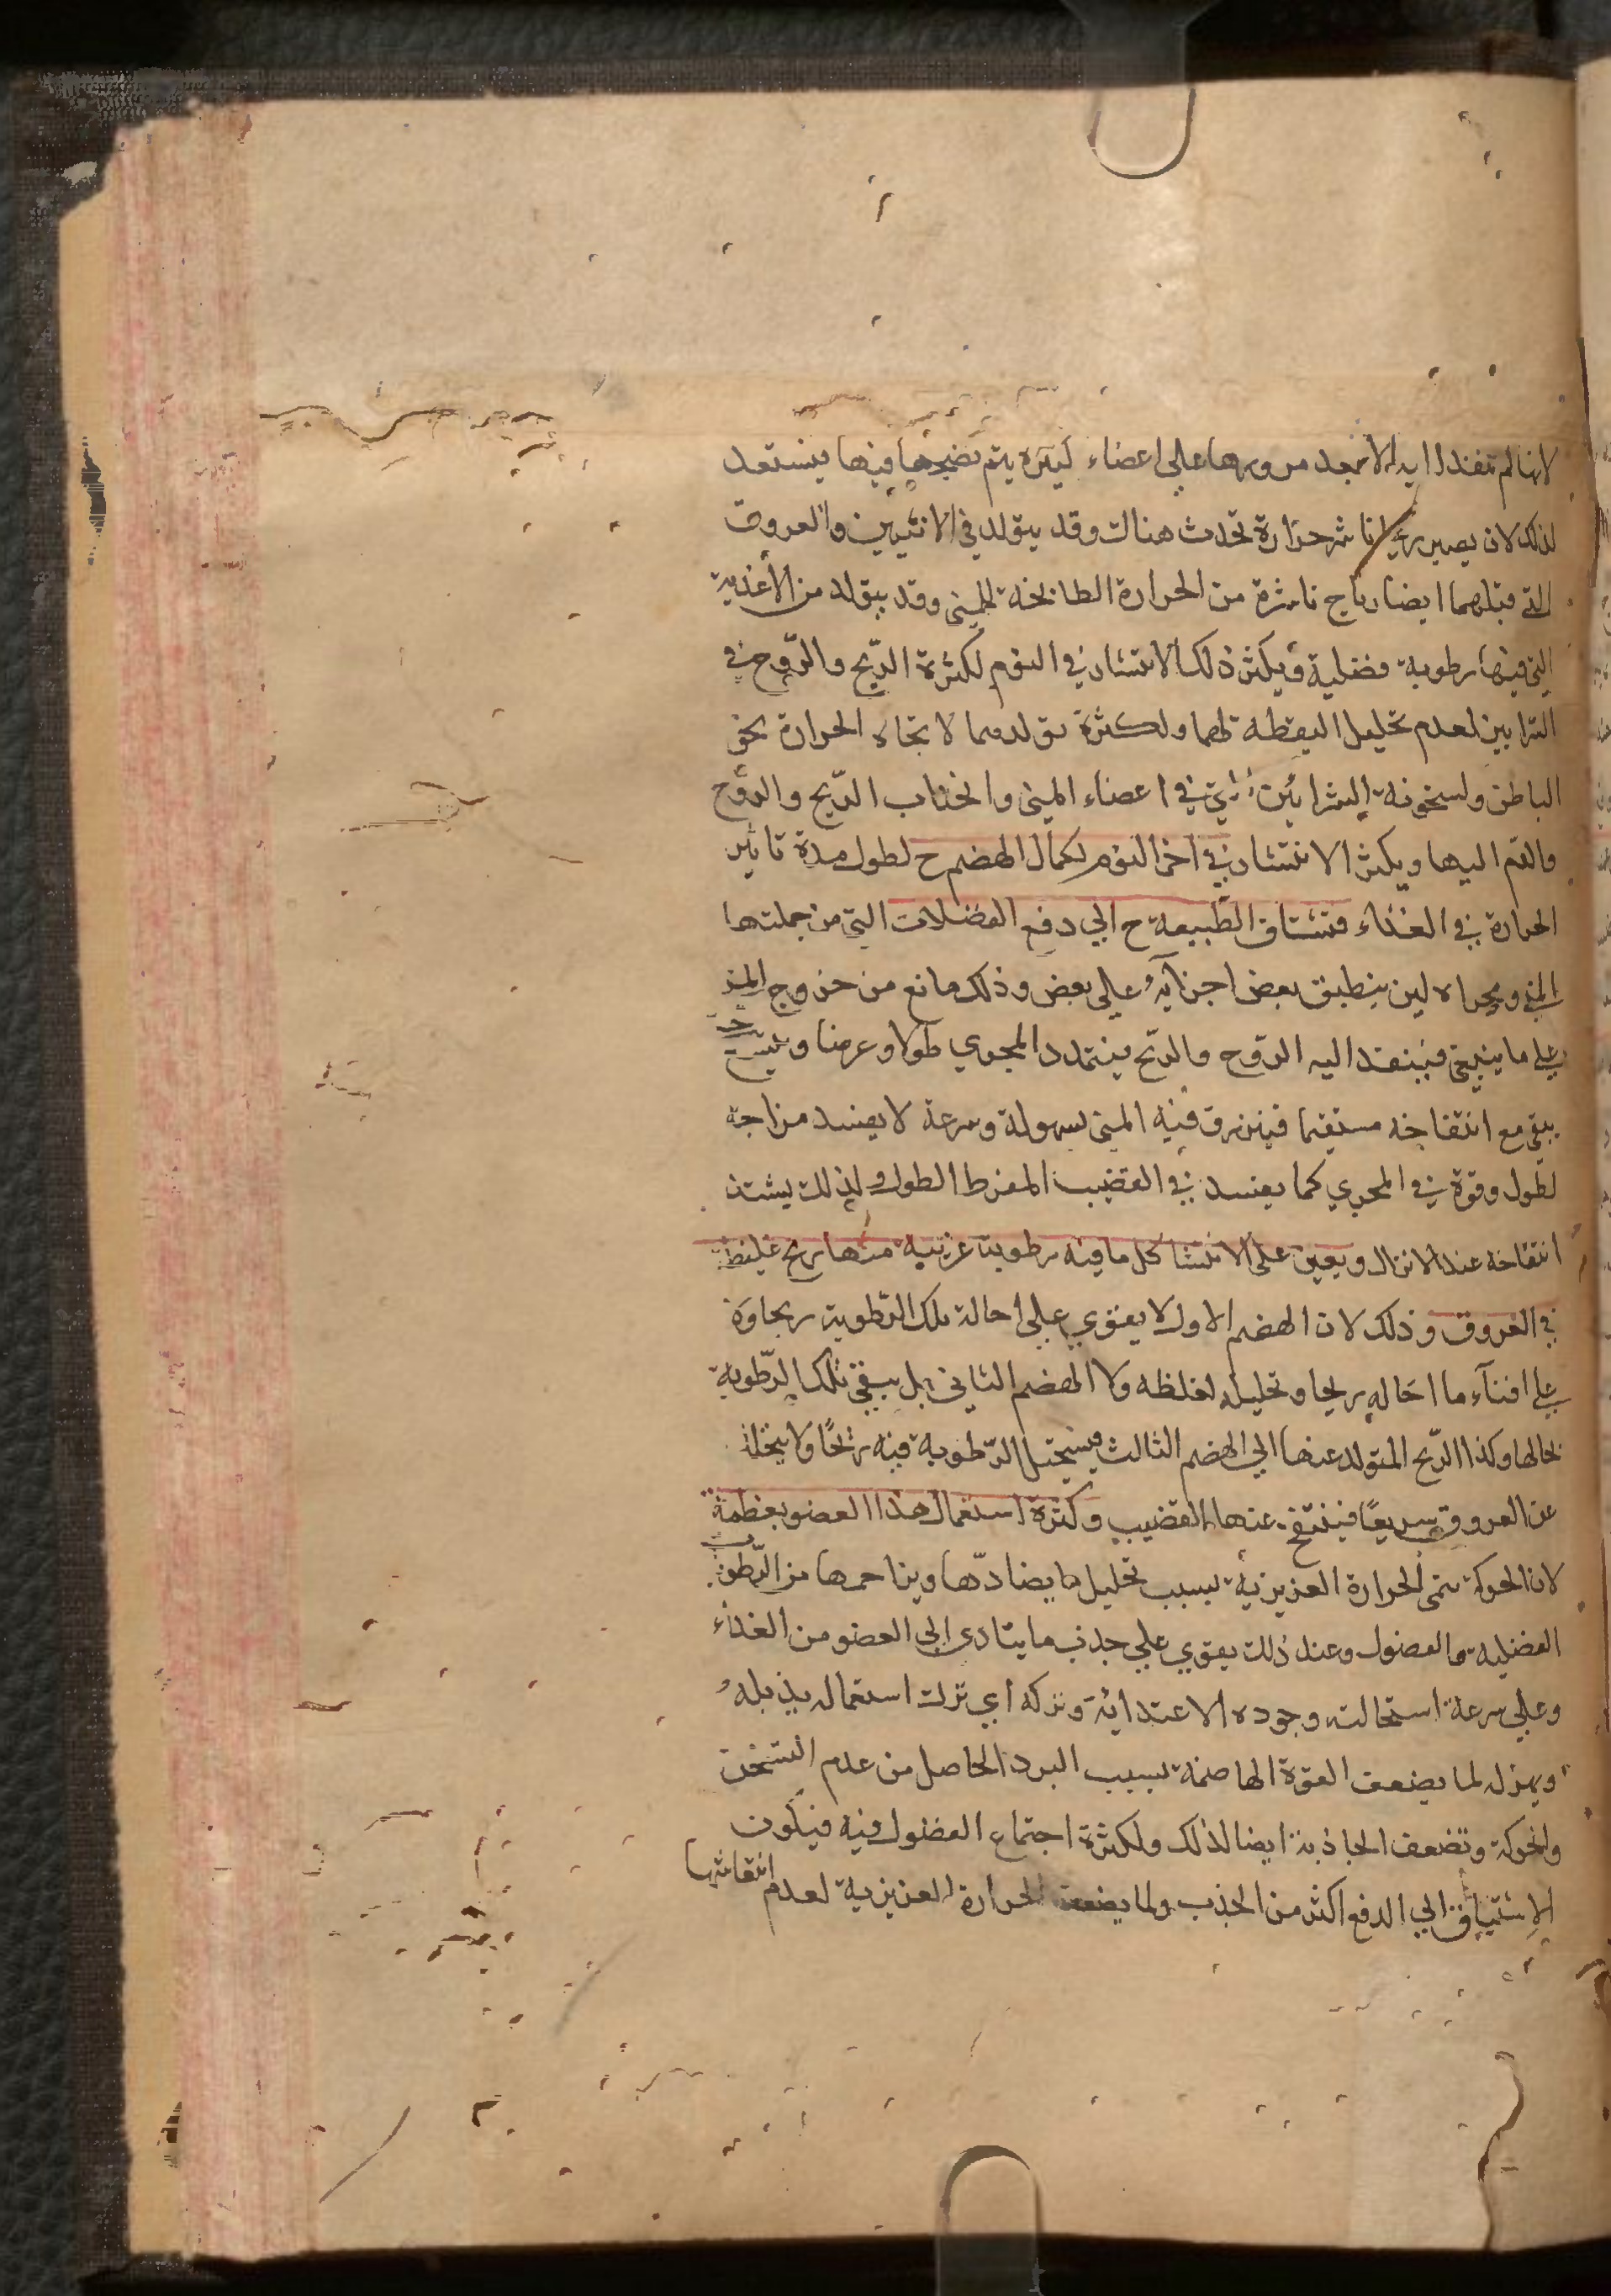 لانها لم تنفذ اليه الا بعد مرورها على اعضاء كثيرة يتم نضجها فيها فيستعد
لذلك لان يصير ريحا ناشر حرارة تحدث هناك وقد يتولد في الانثيين والعروق
التي قبلهما ايضا رياح ناشرة من الحرارة الطابخة للمني وقد يتولد من الأغذية
التي فيها رطوبة فضلية ويكثر ذلك الانتشار في النوم لكثرة الريح والروح في
الشرايين لعدم تحليل اليقظة لهما ولكثرة تولدهما لاتجاه الحرارة نحو
الباطن ولسخونة الشرايين التي في اعضاء المني وانجذاب الريح والروح
والدم اليها ويكثر الانتشار في اخر النوم لكمال الهضم ح لطول مدة تاثير
الحرارة في الغذاء فتشتاق الطبيعة ح الي دفع الفضلات التي من جملتها
المني ومجراه لين ينطبق بعض اجزائه علي بعض وذلك مانع من خروج المني
علي ما ينبغي فينفذ اليه الروح والريح فيتمدد المجري طولا وعرضا
يبقي مع انتفاخه مستقيما فينزرق فيه المني بسهولة وسرعة لا يفسد مزاجه
لطول وقوفه في المجري كما يفسد في القضيب المفرط الطول ولذلك يشتد
انتفاخه عند الانزال ويعين على الانتشا كل ما فيه رطوبة غريبة منها ريح غليظة
في العروق وذلك لان الهضم الاول لا يقوي علي احالة تلك الرطوبة ريحا وة
علي افناء ما احاله ريحا وتحليله لغلظه ولا الهضم الثاني بل يبقي تلك الرطوبة
بحالها وكذا الريح المتولد عنها الي الهضم الثالث فيستحيل الرطوبة فيه ريحًا ولا يتحلل
عن العروق سريعًا فينتفخ عنها القضيب وكثرة استعمال هذا العضو يعظمه
لان الحركة تنمي الحرارة الغريزية بسبب تحليل ما يضادها ويزاحمها من الرطوبة
الفضلية والفضول وعند ذلك يقوي علي جذب ما يتادى الي العضو من الغذاء
وعلي سرعة استحالته وجوده الاغتذائية وتركه اي ترك استعماله يذبله
ويهزله لما يضعف القوة الهاضمة بسبب البرد الحاصل من عدم التسخن
والحركة وتضعف الجاذبة ايضا لذلك ولكثرة اجتماع الفضول فيه فيكون
الاشتياق الي الدفع اكثر من الجذب ولما يضعف الحرارة الغريزية لعدم انتعاشها